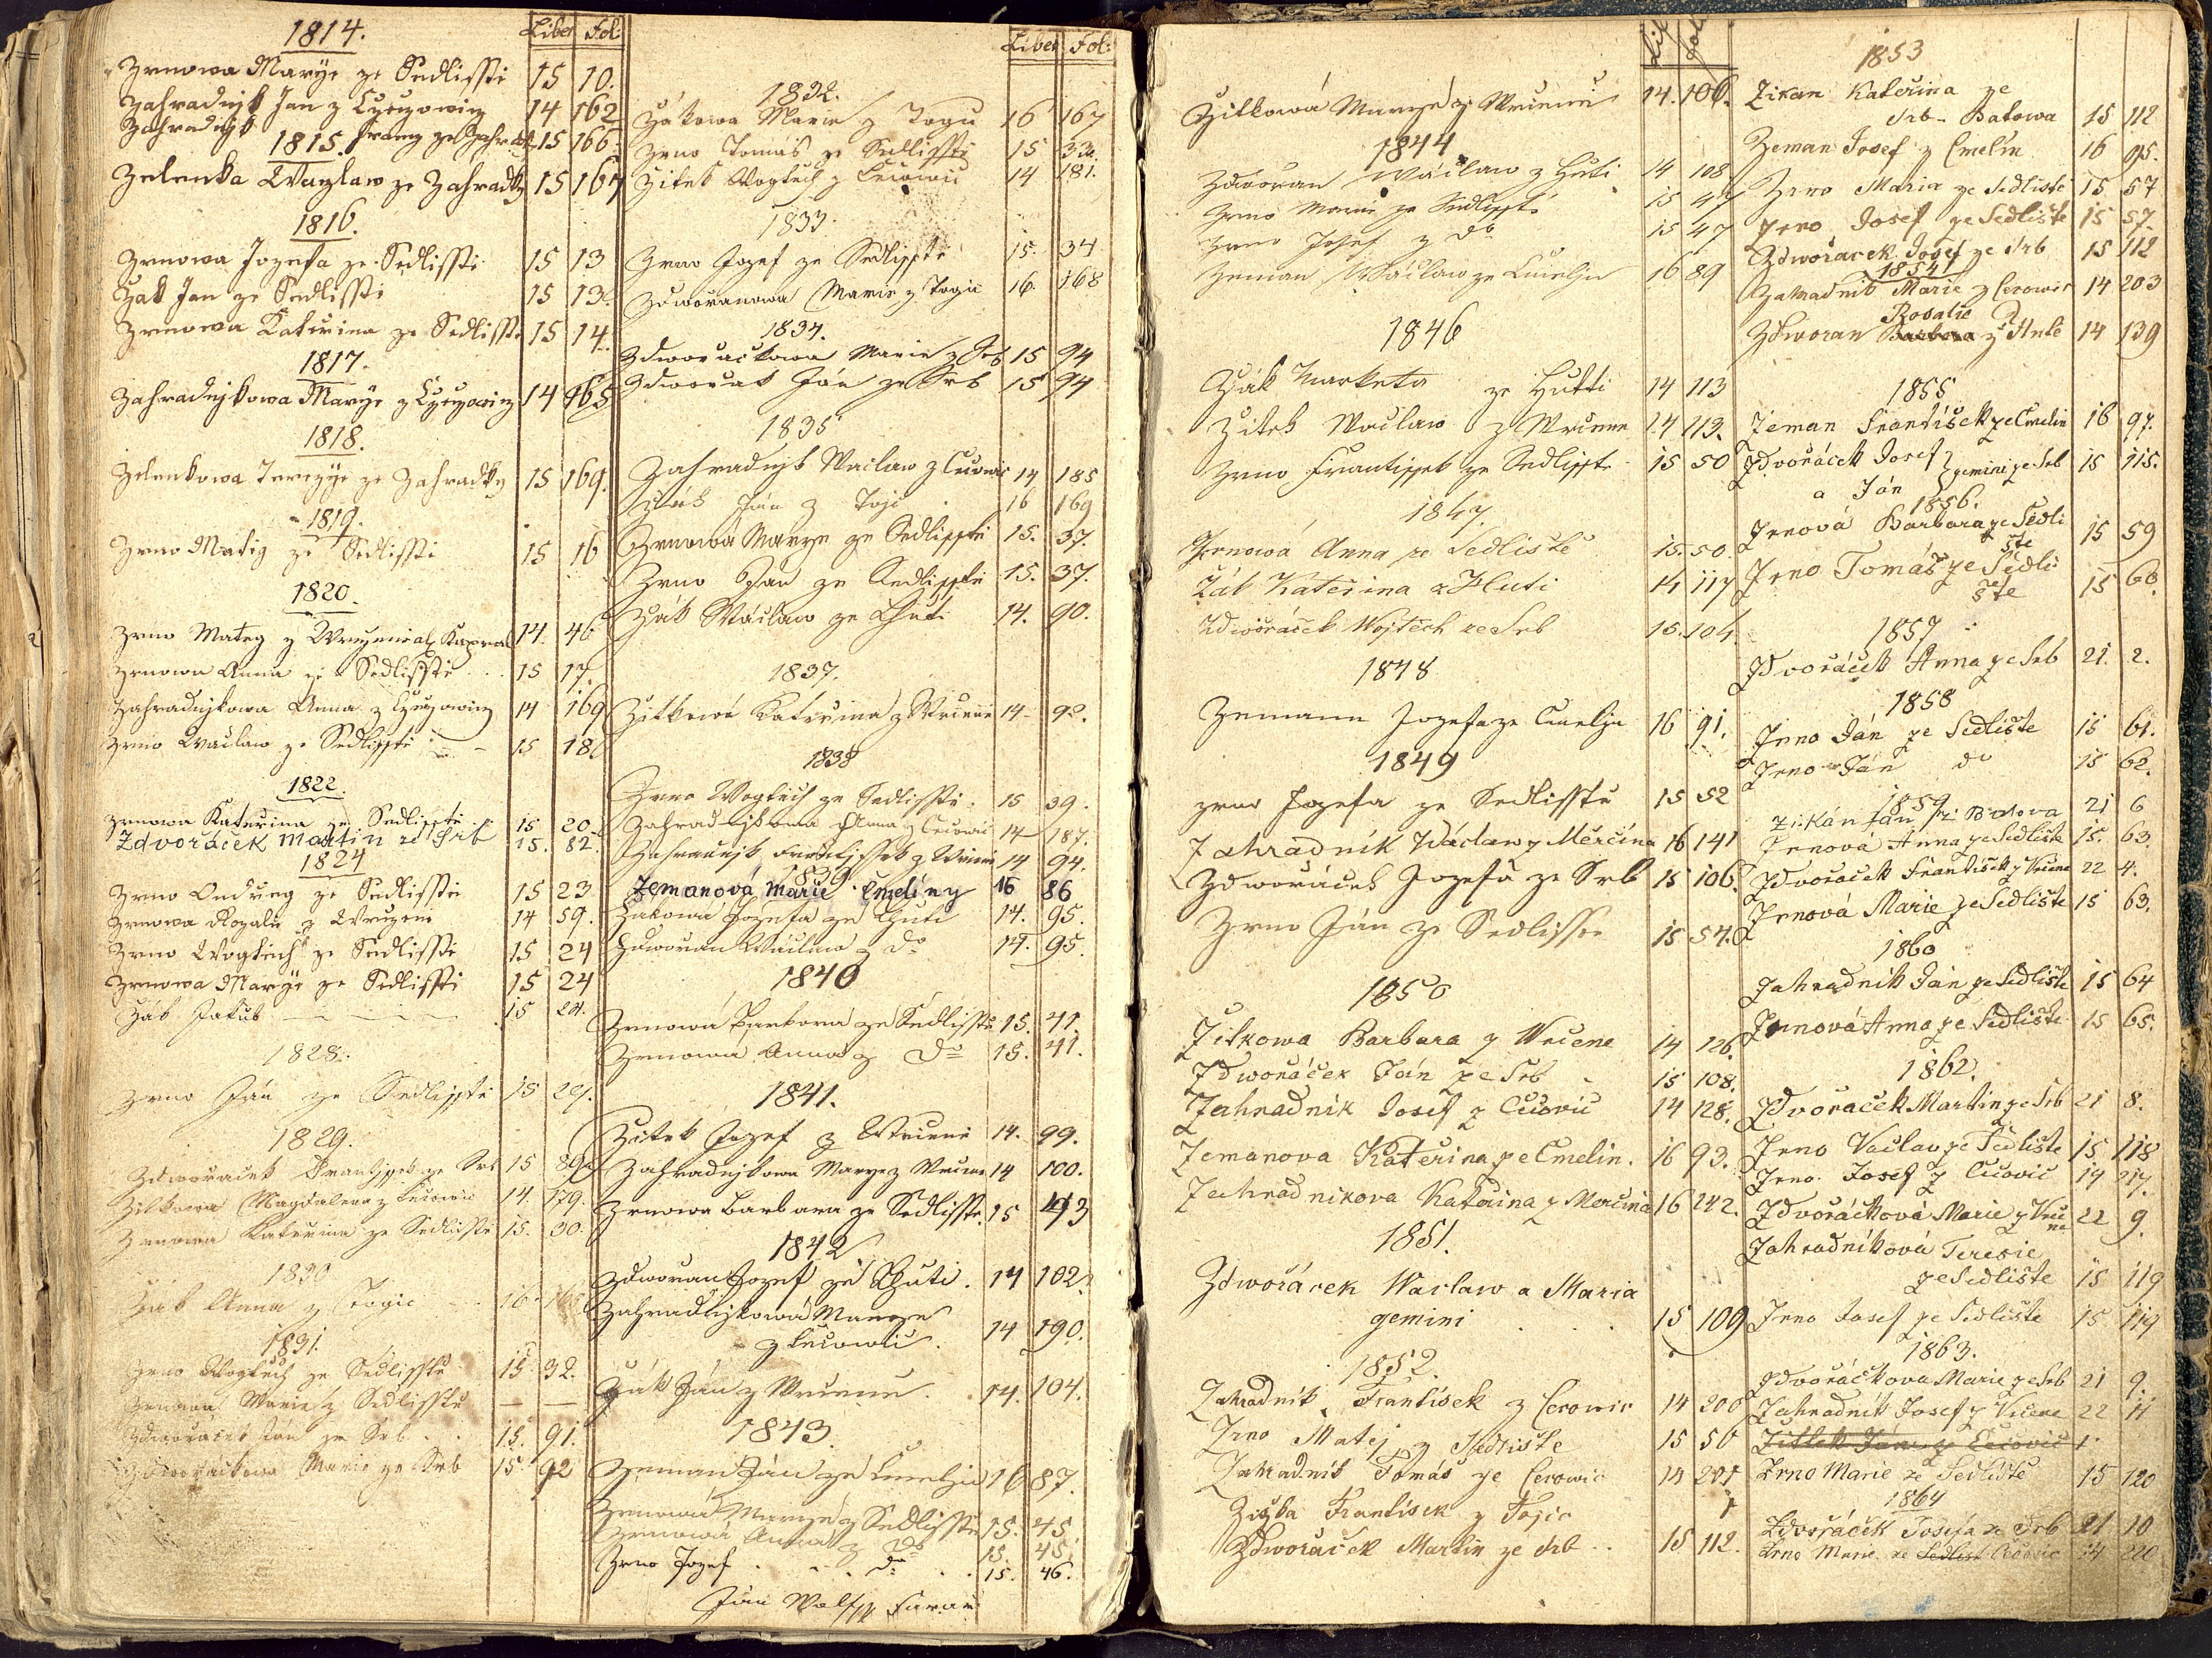 1814.
Liber Fol:
Zrnowa Marye ze Sedlisstě 15 10.
Zahradnjk Jan z 14 162
Zahradnjk Franz ze Zahradky 15 166.
1815.
Zelenka Waczlaw ze Zahradky 15 167
1816.
Zrnowa Jozefa ze Sedlisstě 15 13
Žák Jan ze Sedlisstě 15 13.
Zrnowa Kateřina ze Sedlisstě 15 14.
1817.
Zahradnjkowa Marye z 14 165
1818.
Zelenkowa Terezye ze Zahradky 15 169.
1819.
Zrno Matěg ze Sedlisstě 15 16
1820.
Zrno Matěg z 14. 46
Zrnowa Anna ze Sedlisstě 15 17.
Zahradnjkowa Anna z 14 169
Zrno Waclaw ze Sedlisstě 15 18.
1822.
Zrnowa Kateřina ze Sedlisstě 15 20.
Zdvořáček Martin ze Srb 15. 82.
1824
Zrno Ondřeg ze Sedlisstě 15 23
Zrnowa Rozalie z 14 59.
Zrno Wogtěch ze Sedlisstě 15 24
Zrnowa Marye ze Sedlisstě 15 24
Žák Jakub 15 24.
1828.
Zrno Ján ze Sedlisstě 15 29.
1829.
Zdworáček Frantissek ze Srb 15 89
Magdalena z 14. 179.
Zrnowa Kateřina ze Sedlisstě 15. 30.
1830
Žák Anna z Togic 16
1831.
Zrno Wogtěch ze Sedlisstě 15 32.
Zrnowa Marie z Sedlisstě — —
Zdworáček Ján ze Srb 15. 91.
Zdworáčkowa Marie ze Srb 15. 92
Liber Fol:
1832.
Žákowa Marie z Togic 16 167
Zrno Tomáš ze Sedlisstě 15 33.
Zitek Wogtěch z 14 181.
1833.
Zrno Jozef ze Sedlisstě 15. 34
Zdwořanowa Marie z Togic 16. 168
1834.
Zdworáčkowa Marie z Srb 15 94
Zdworáček Ján ze Srb 15 94
1835
Zahradnjk Waclaw z 14 185
Ján z Togic 16 169
Zrnowa Marye ze Sedlisstě 15. 37.
Zrno Jan ze Sedlisstě 15. 37.
Žák Wáclaw ze Huti 14. 90.
1837.
Zitkowá Kateřina z Wrčeně 14 92.
1838
Zrno Wogtěch ze Sedlisstě 15 39.
Zahradnjkowa Anna z 14 187.
Zahradnjk Frantissek z Wrčeně 14 94.
1839
Zemanová Marie Čmelíny 16 86
Žákowá Jozefa ze Huti 14. 95.
Zdwořan Wáclaw z do 14. 95.
1840
Zrnowá Barbora ze Sedlisstě 15. 41.
Zrnowá Anna z Do 15. 41.
1841.
Zitek Jozef z Wrčeně 14. 99.
Zahradnjkowa Marye z Wrčeně 14 100.
Zrnowa Barbara ze Sedlisstě. 15 43
1842
Zdwořan Jozef ze Huti. 14 102.
Zahradnjkowá Marye
z 14 190.
Žák Ján z Wrčeně. 14. 104.
1843.
Zeman Ján ze Čmelin 16 87.
Zrnowá Marye z Sedlisstě 15. 45.
Zrnowá Anna z Do 15. 45.
Zrno Jozef Do 15. 46.
Ján Farar
Zitkowá Marye z Wrčeně 14. 106.
1844
Zdwořan Wáclaw z Huti 14 108
Zrno Marie ze Sedlisstě 15 47
Zrno Josef z Do 15 47
Zeman Wáclaw ze Čmelin 16 89
1846
Žák Marketa ze Hutti 14 113
Zitek Waclaw z Wrčene 14 113.
Zrno Frantissek ze Sedlisste 15 50
1847.
Zrnowá Anna ze Sedliště 15. 50.
Žák Kateřina z Huti 14 117
Zdwořáček Wojtěch ze Srb 15. 104.
1848
Zemann Jozefa ze Čmelin 16 91.
1849
Zrno Jozefa ze Sedlisstě 15 52
Zahradník Wáclaw z Měrčina 16 141
Zdwořáček Jozefa ze Srb 15 106.
Zrno Ján ze Sedlisstě 15 54.
1850
Žitkowa Barbara z Wrčene 14 126.
Zdwořáček Ján ze Srb 15 108.
Zahradnik Josef z Čečovic 14 128.
Zemanova Kateřina ze Čmelin. 16 93.
Zahradnikova Kateřina z Měrčina 16 242.
1851.
Zdwořáček Waclaw a Maria
gemini 15 109
1852.
Zahradnik Frantisek z Čečowic 14 200
Zrno Matěj z Sedliště 15 56
Zahradnik Tomáš ze Čečowic 14 201
Frantisek z Tojic
Zdwořáček Martin ze Srb 15 112.
1853
Zikan Kateřina ze
Srb - Batowa 15 112
Zeman Josef z Čmelin 16 95.
Zrno Maria ze Sedliště 15 57
Zrno Josef ze Sedliště 15 57.
Zdwořáček Josef ze Srb 15 112
1854
Zahradnik Marie z Čečowic 14 203
Rosalie
Zdwořan Barbora z Hutě 14 139
1855
Zeman František ze Čmelin 16 97.
Zdvořáček Josef
a Ján gemini ze Srb 15 115.
1856.
Zrnová Barbara ze Sedli
ště 15 59
Zrno Tomáš ze Sedli
ště 15 60.
1857
Zdvořáček Anna ze Srb 21. 2.
1858
Zrno Ján ze Sedliště 15 61.
Zrno Ján do 15 62.
1859
Zikán Ján ze Batova 21 6
Zrnová Anna ze Sedliště 15. 63.
Zdvořáček František z Vrčene 22 4.
Zrnová Marie ze Sedliště 15 63.
1860
Zahradník Ján ze Sedliště 15 64
Zrnová Anna ze Sedliště 15 65.
1862.
Zdvořáček Martin ze Srb 21 8.
Zrno Vaclav ze Sedliště 15 118
Zrno Josef z Čičovic 14 217.
Zdvořáčková Marie z Vrče
ne 22 9.
Zahradníková Teresie
ze Sedliště 15 119
Zrno Josef ze Sedliště 15 119
1863.
Zdvořáčkova Marie ze Srb 21 9.
Zahradník Josef z Vrčene 22 11
Zitek Jan z Čečovic
Zrno Marie ze Sedliště 15 120
1864
Zdvořáček Josefa ze Srb 21 10
Zrno Marie ze Sedlist Čičovic 14 220